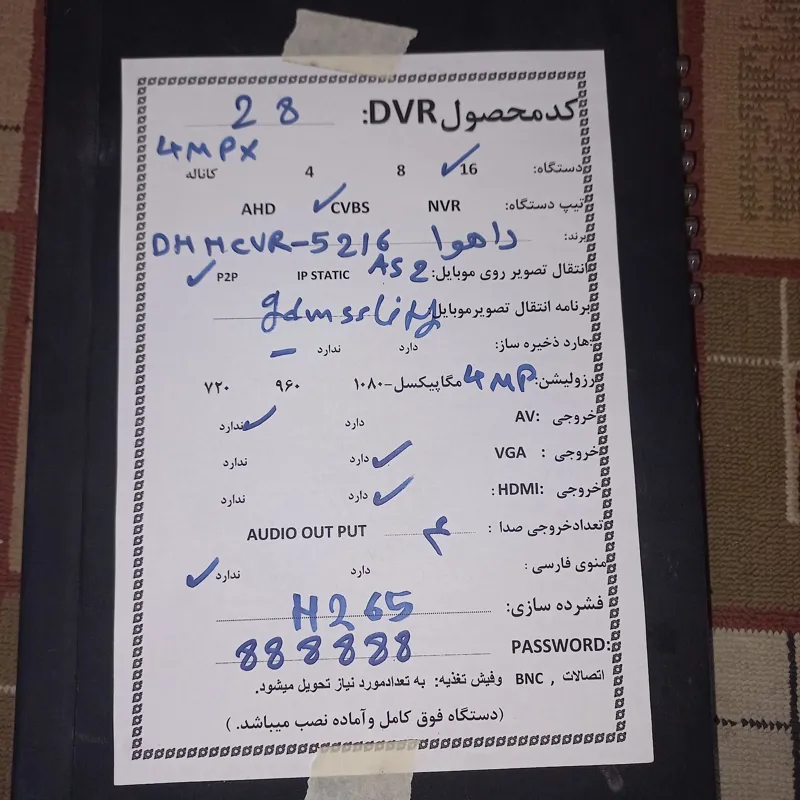 کدمحصول DVR: 28
4MPX
دستگاه: 16 ✓ 8 4 کاناله
تیپ دستگاه: NVR CVBS ✓ AHD
برند: داهوا DHHCVR-5216
AS2
انتقال تصویر روی موبایل: IP STATIC P2P ✓
برنامه انتقال تصویرموبایل: gdmss
هارد ذخیره ساز: دارد ندارد –
رزولیشن: 4MP مگاپیکسل-۱۰۸۰ ۹۶۰ ۷۲۰
خروجی AV: دارد ندارد ✓
خروجی VGA : دارد ✓ ندارد
خروجی HDMI: : دارد ✓ ندارد
تعدادخروجی صدا : ۴ AUDIO OUT PUT
منوی فارسی : دارد ندارد ✓
فشرده سازی: H265
PASSWORD: 888888
اتصالات , BNC وفیش تغذیه: به تعدادمورد نیاز تحویل میشود.
(دستگاه فوق کامل وآماده نصب میباشد. )